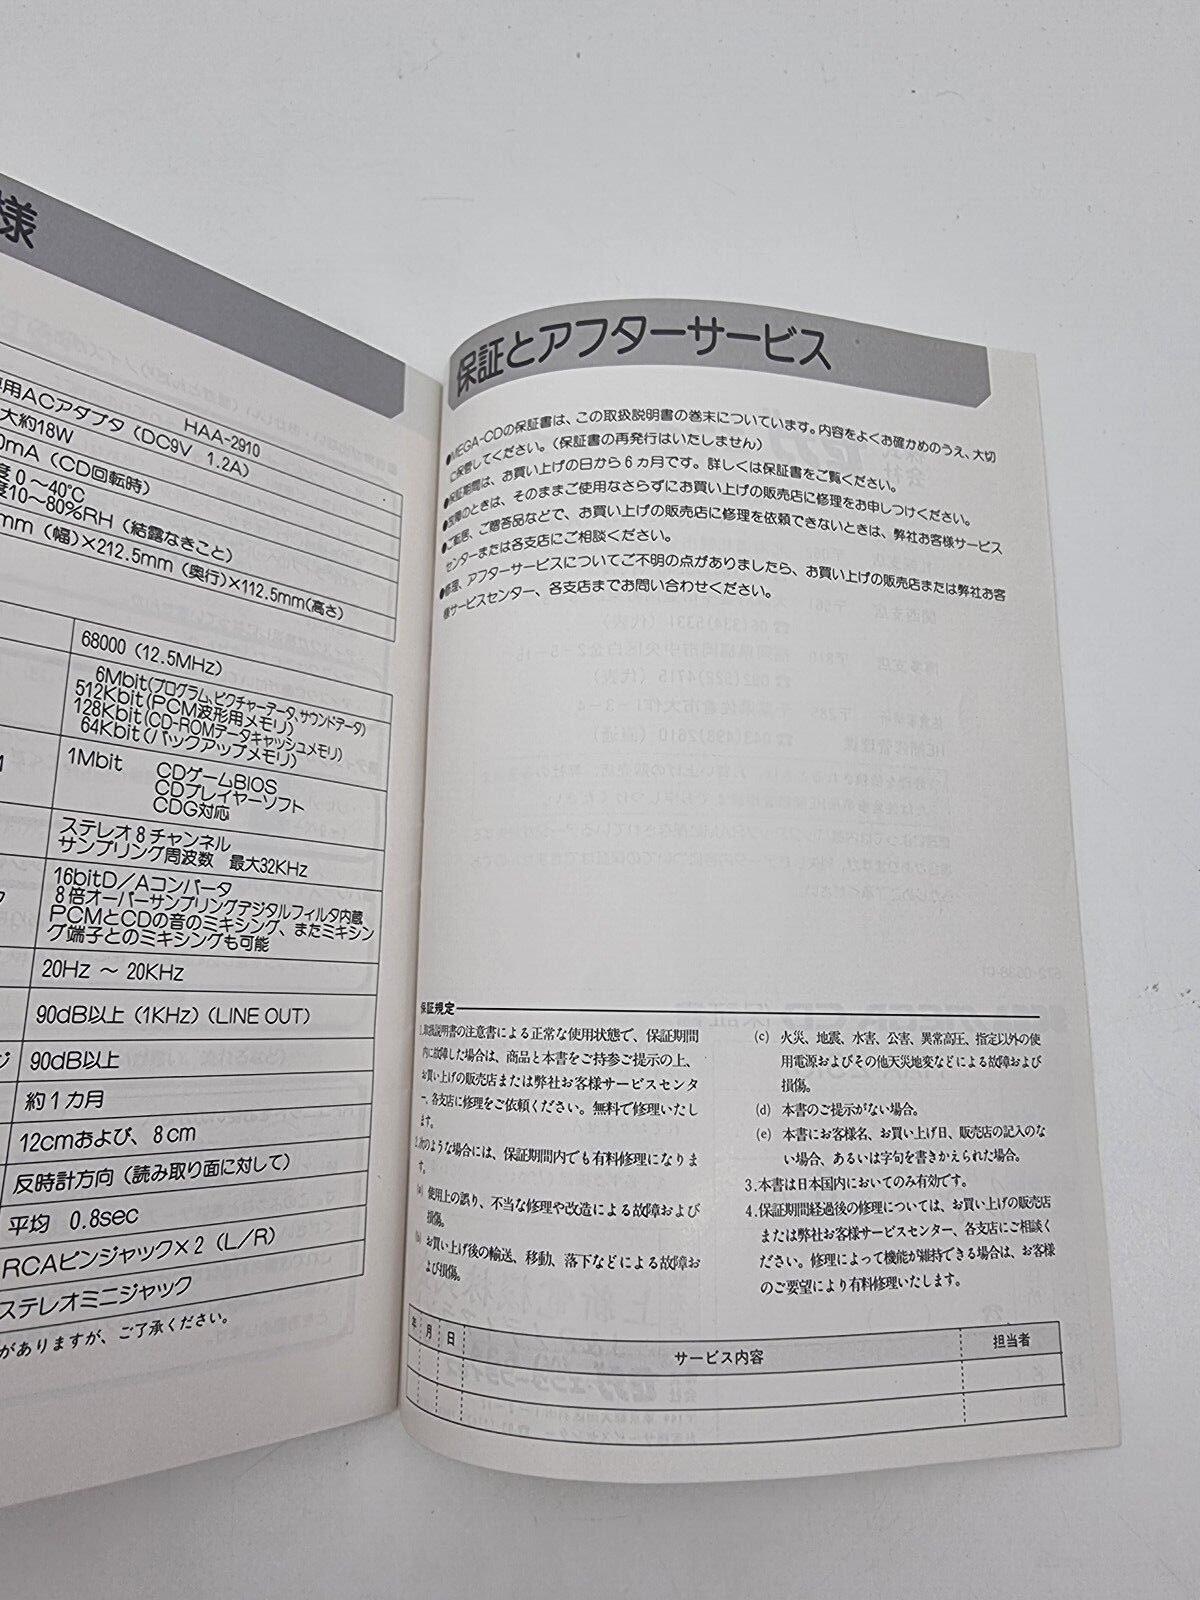 様
専用ACアダプタ (DC9V 1.2A) HAA-2910
大約18W
0mA (CD回転時)
度 0 ~40℃
度10~80%RH (結露なきこと)
mm (幅)×212.5mm (奥行)×112.5mm(高さ)
68000 (12.5MHz)
6Mbit(プログラム、ピクチャーデータ、サウンドデータ)
512Kbit(PCM波形用メモリ)
128Kbit(CD-ROMデータキャッシュメモリ)
64Kbit(バックアップメモリ)
1Mbit CDゲームBIOS
CDプレイヤーソフト
CDG対応
ステレオ8チャンネル
サンプリング周波数 最大32KHz
16bitD/Aコンバータ
8倍オーバーサンプリングデジタルフィルタ内蔵
PCMとCDの音のミキシング、またミキシン
グ端子とのミキシングも可能
20Hz ~ 20KHz
90dB以上 (1KHz) (LINE OUT)
ジ 90dB以上
約1カ月
12cmおよび、8cm
反時計方向 (読み取り面に対して)
平均 0.8sec
RCAピンジャック×2 (L/R)
ステレオミニジャック
がありますが、ご了承ください。
保証とアフターサービス
●MEGA-CDの保証書は、この取扱説明書の巻末についています。内容をよくお確かめのうえ、大切
に保管してください。(保証書の再発行はいたしません)
●保証期間は、お買い上げの日から6カ月です。詳しくは保証書をご覧ください。
●故障のときは、そのままご使用なさらずにお買い上げの販売店に修理をお申しつけください。
●ご転居、ご贈答品などで、お買い上げの販売店に修理を依頼できないときは、弊社お客様サービス
センターまたは各支店にご相談ください。
●修理、アフターサービスについてご不明の点がありましたら、お買い上げの販売店または弊社お客
様サービスセンター、各支店までお問い合わせください。
保証規定
1.取扱説明書の注意書による正常な使用状態で、保証期間
内に故障した場合は、商品と本書をご持参ご提示の上、
お買い上げの販売店または弊社お客様サービスセンタ
ー、各支店に修理をご依頼ください。無料で修理いたし
ます。
2.次のような場合には、保証期間内でも有料修理になりま
す。
(a) 使用上の誤り、不当な修理や改造による故障および
損傷。
(b) お買い上げ後の輸送、移動、落下などによる故障お
よび損傷。
(c) 火災、地震、水害、公害、異常高圧、指定以外の使
用電源およびその他天災地変などによる故障および
損傷。
(d) 本書のご提示がない場合。
(e) 本書にお客様名、お買い上げ日、販売店の記入のな
い場合、あるいは字句を書きかえられた場合。
3.本書は日本国内においてのみ有効です。
4.保証期間経過後の修理については、お買い上げの販売店
または弊社お客様サービスセンター、各支店にご相談く
ださい。修理によって機能が維持できる場合は、お客様
のご要望により有料修理いたします。
年 月 日 サービス内容 担当者